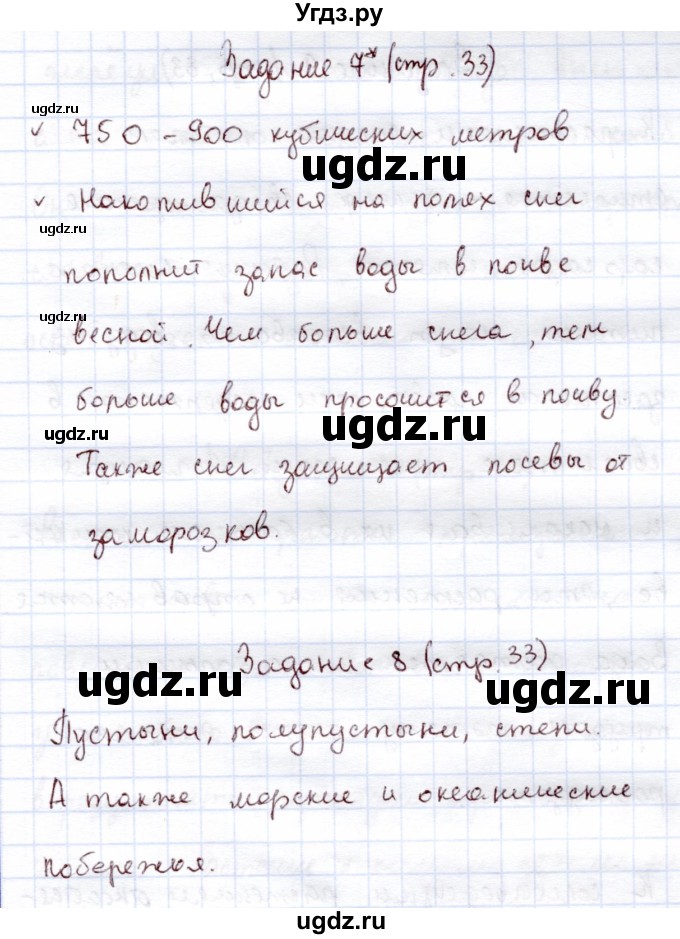 Угдз.ру
Задание 7* (стр. 33)
ugdz.ru
✓ 750 - 900 кубических метров
ugdz.ru
✓ Накопившийся на полях снег
ugdz.ru
пополнит запас воды в почве
ugdz.ru
весной. Чем больше снега, тем
больше воды просочится в почву.
ugdz.ru
ugdz.ru
Также снег защищает посевы от
заморозков.
Задание 8 (стр. 33)
ugdz.ru
ugdz.ru
Пустыни, полупустыни, степи.
А также морские и океанические
побережья.
ugdz.ru